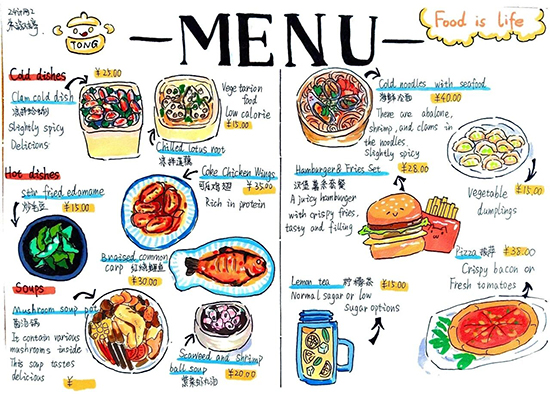 TONG
MENU
Food is life
Cold dishes
¥25.00
Clam cold dish
Slightly spicy
Delicions
Vegetarian
food
low calorie
¥15.00
Chilled lotus root
凉拌莲藕
Hot dishes
stir fried edamame
炒毛豆
¥15.00
Coke Chicken Wings
可乐鸡翅
¥35.00
Rich in protein
Braised common
carp 红烧鲤鱼
¥30.00
Soups
Mushroom soup pot
菌汤锅
It contain various
mushrooms inside
This soup tastes
delicious
¥
Seaweed and Shrimp
ball soup
¥20.00
Cold noodles with seafood
海鲜冷面
¥40.00
There are abalone,
shrimp, and clams in
the noodles,
slightly spicy
Hamburger & Fries Set
汉堡薯条套餐
¥28.00
A juicy hamburger
with crispy fries,
tasty and filling
Vegetable
dumplings
¥15.00
Pizza 披萨 ¥38.00
Crispy bacon on
Fresh tomatoes
Lemon tea 柠檬茶 ¥15.00
Normal sugar or low
Sugar options